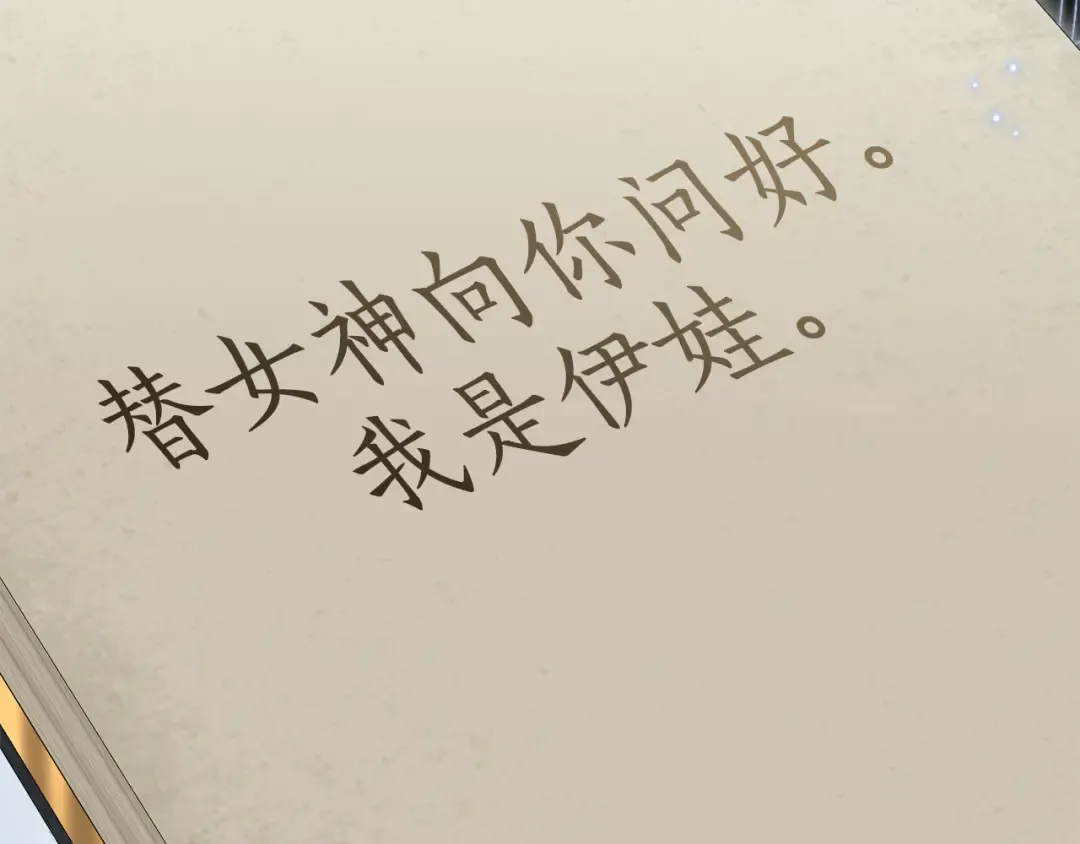 替女神向你问好。
我是伊娃。